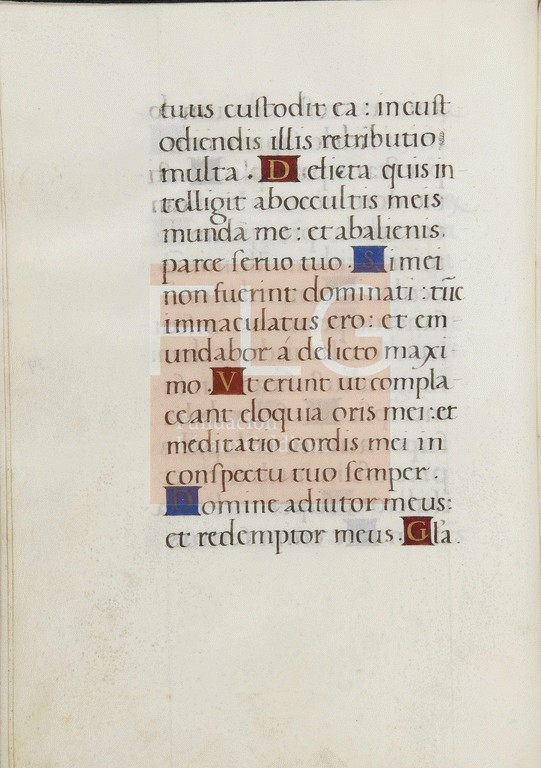 tuus custodit ea : incust
odiendis illis retributio
multa . Delicta quis in
telligit aboccultis meis
munda me : et abalienis.
parce seruo tuo . Si mei
non fuerint dominati : tūc
immaculatus ero : et em
undabor á delicto maxi
mo . Vt erunt ut compla
ceant eloquia oris mei : et
meditatio cordis mei in
conspectu tuo semper .
Domine adiutor meus :
et redemptor meus . Gla .
FLG
Fundación